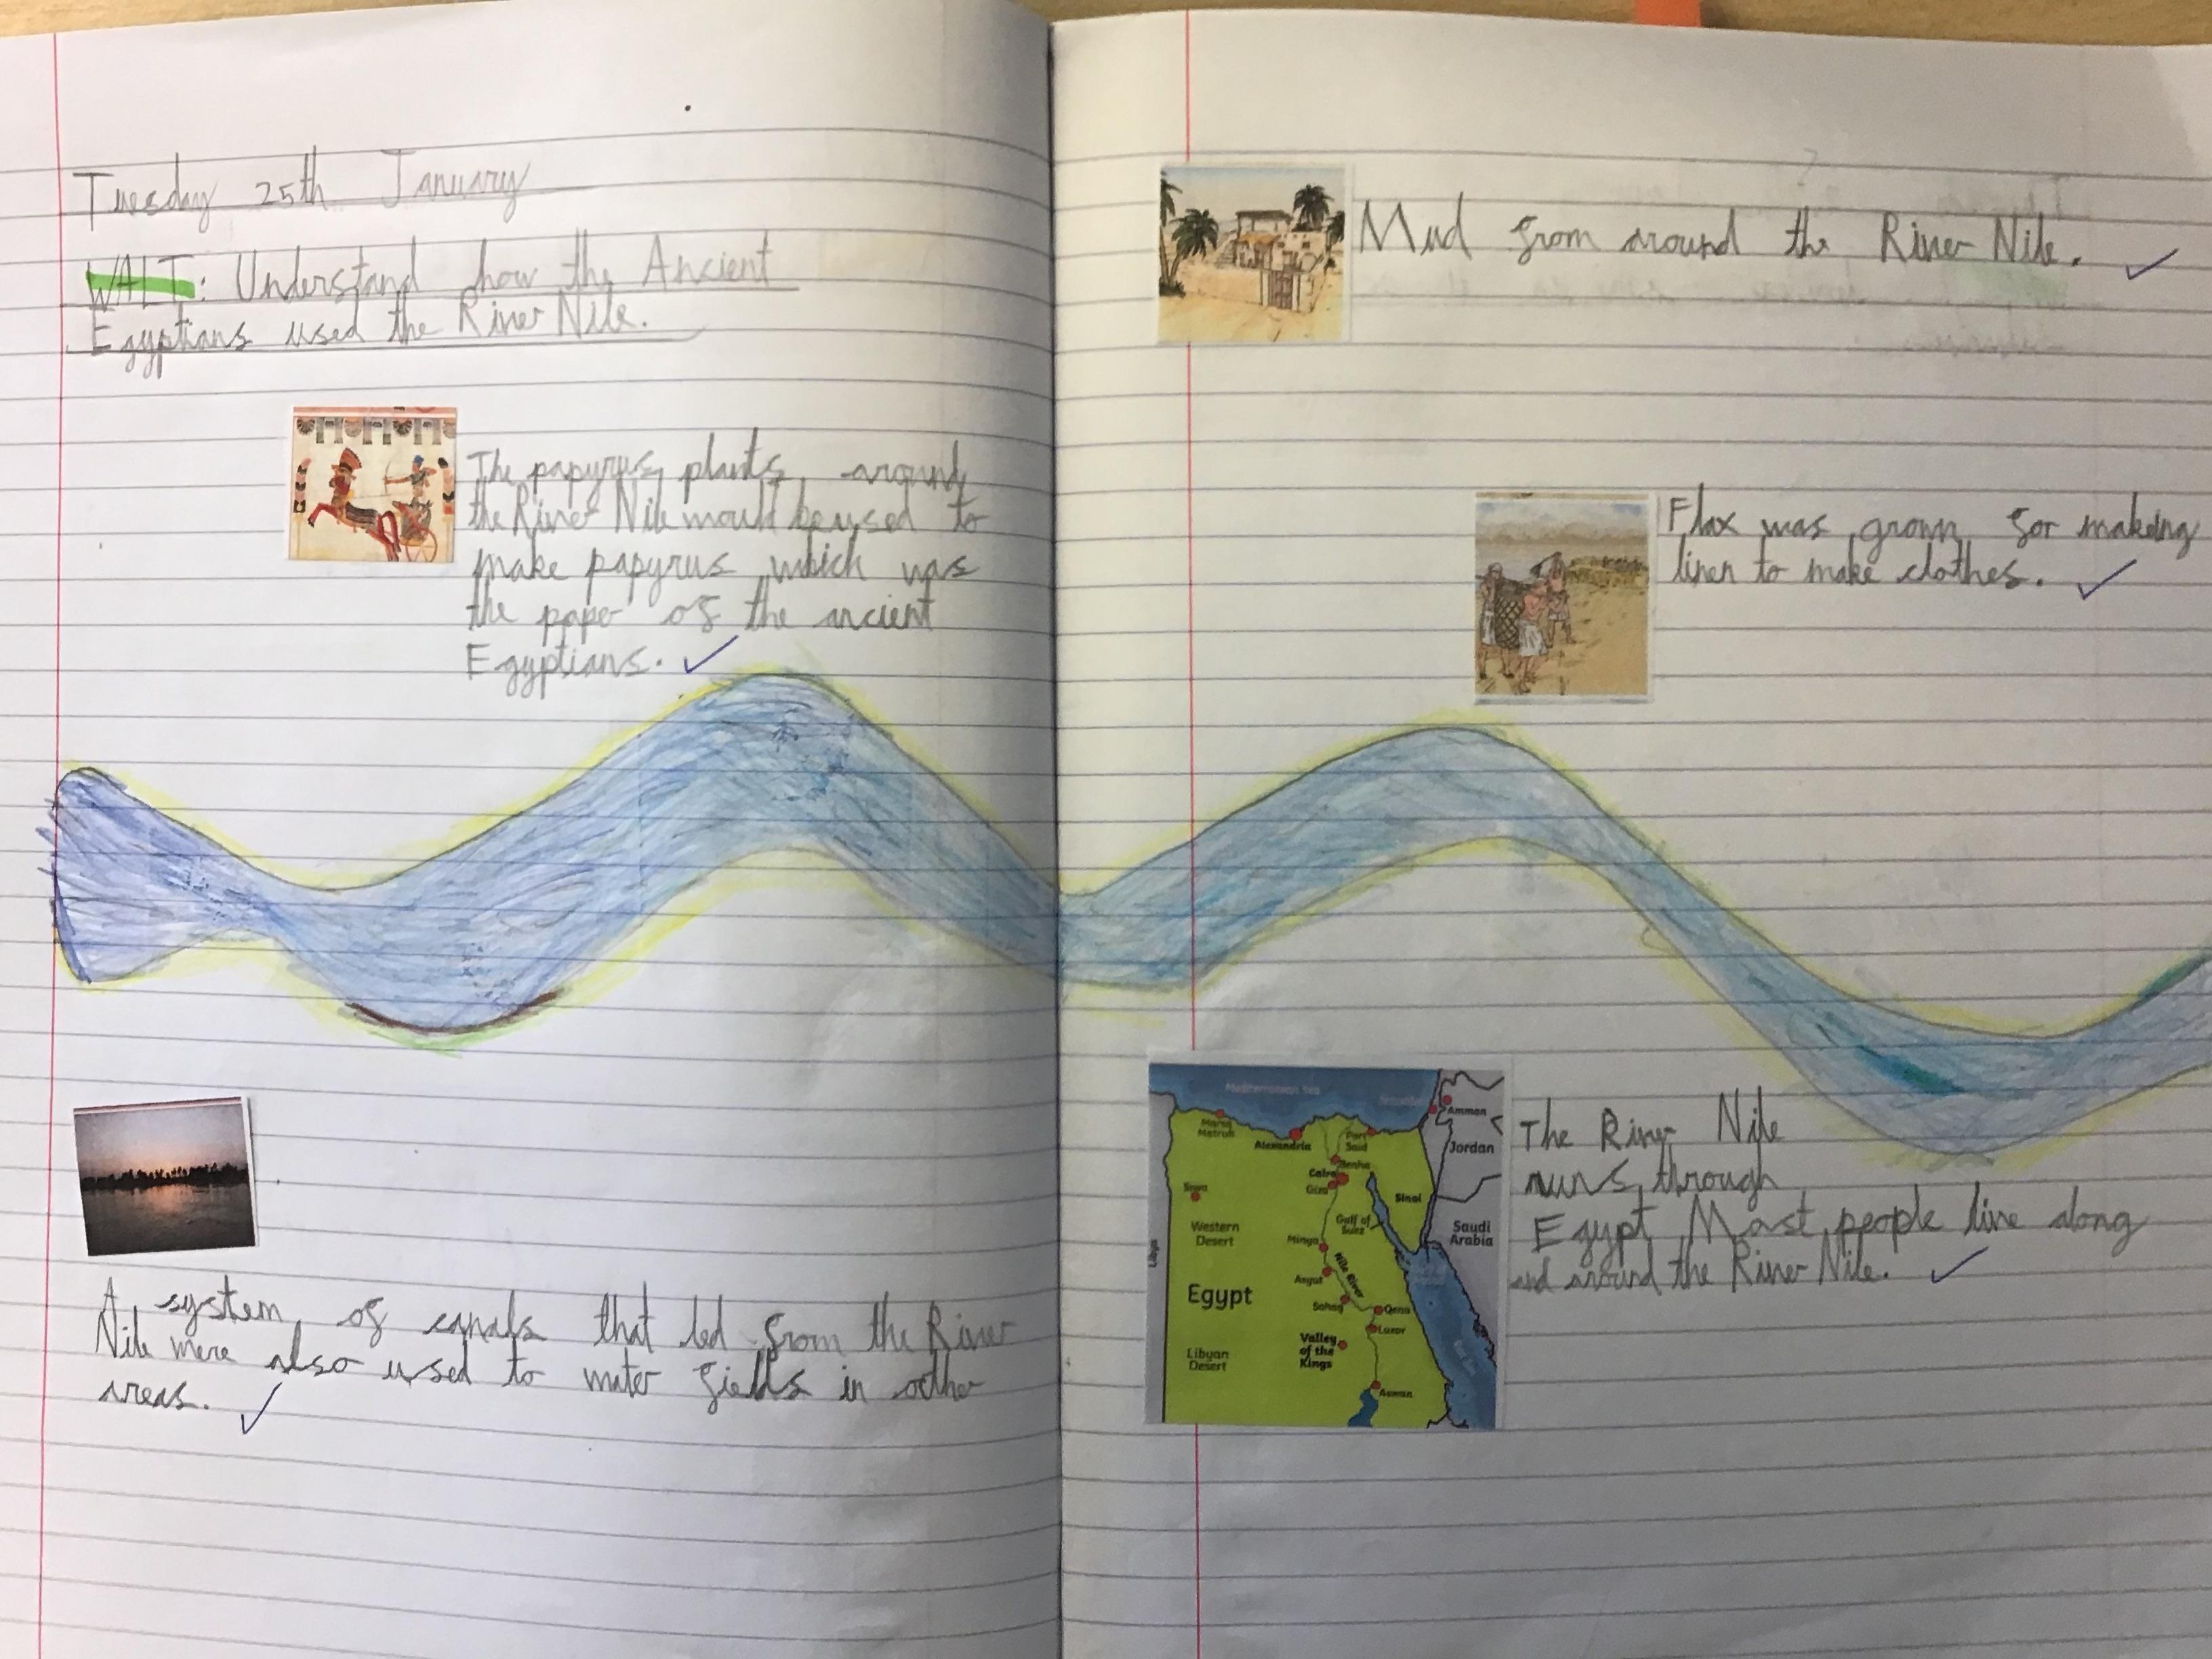 Tuesday 25th January
WALT: Understand how the Ancient
Egyptians used the River Nile.
The papyrus plants around
the River Nile would be used to
make papyrus which was
the paper of the ancient
Egyptians.
A system of canals that led from the River
Nile were also used to water fields in other
areas.
Mud from around the River Nile.
Flax was grown for making
linen to make clothes.
Mediterranean Sea
Marsa
Matruh
Alexandria
Port
Said
Amman
Jordan
Benha
Cairo
Giza
Siwa
Sinai
Gulf of
Suez
Western
Desert
Saudi
Arabia
Libya
Minya
Nile River
Asyut
Egypt
Sohag
Qena
Luxor
Valley
of the
Kings
Libyan
Desert
Aswan
Red Sea
The River Nile
runs through
Egypt Most people live along
and around the River Nile.